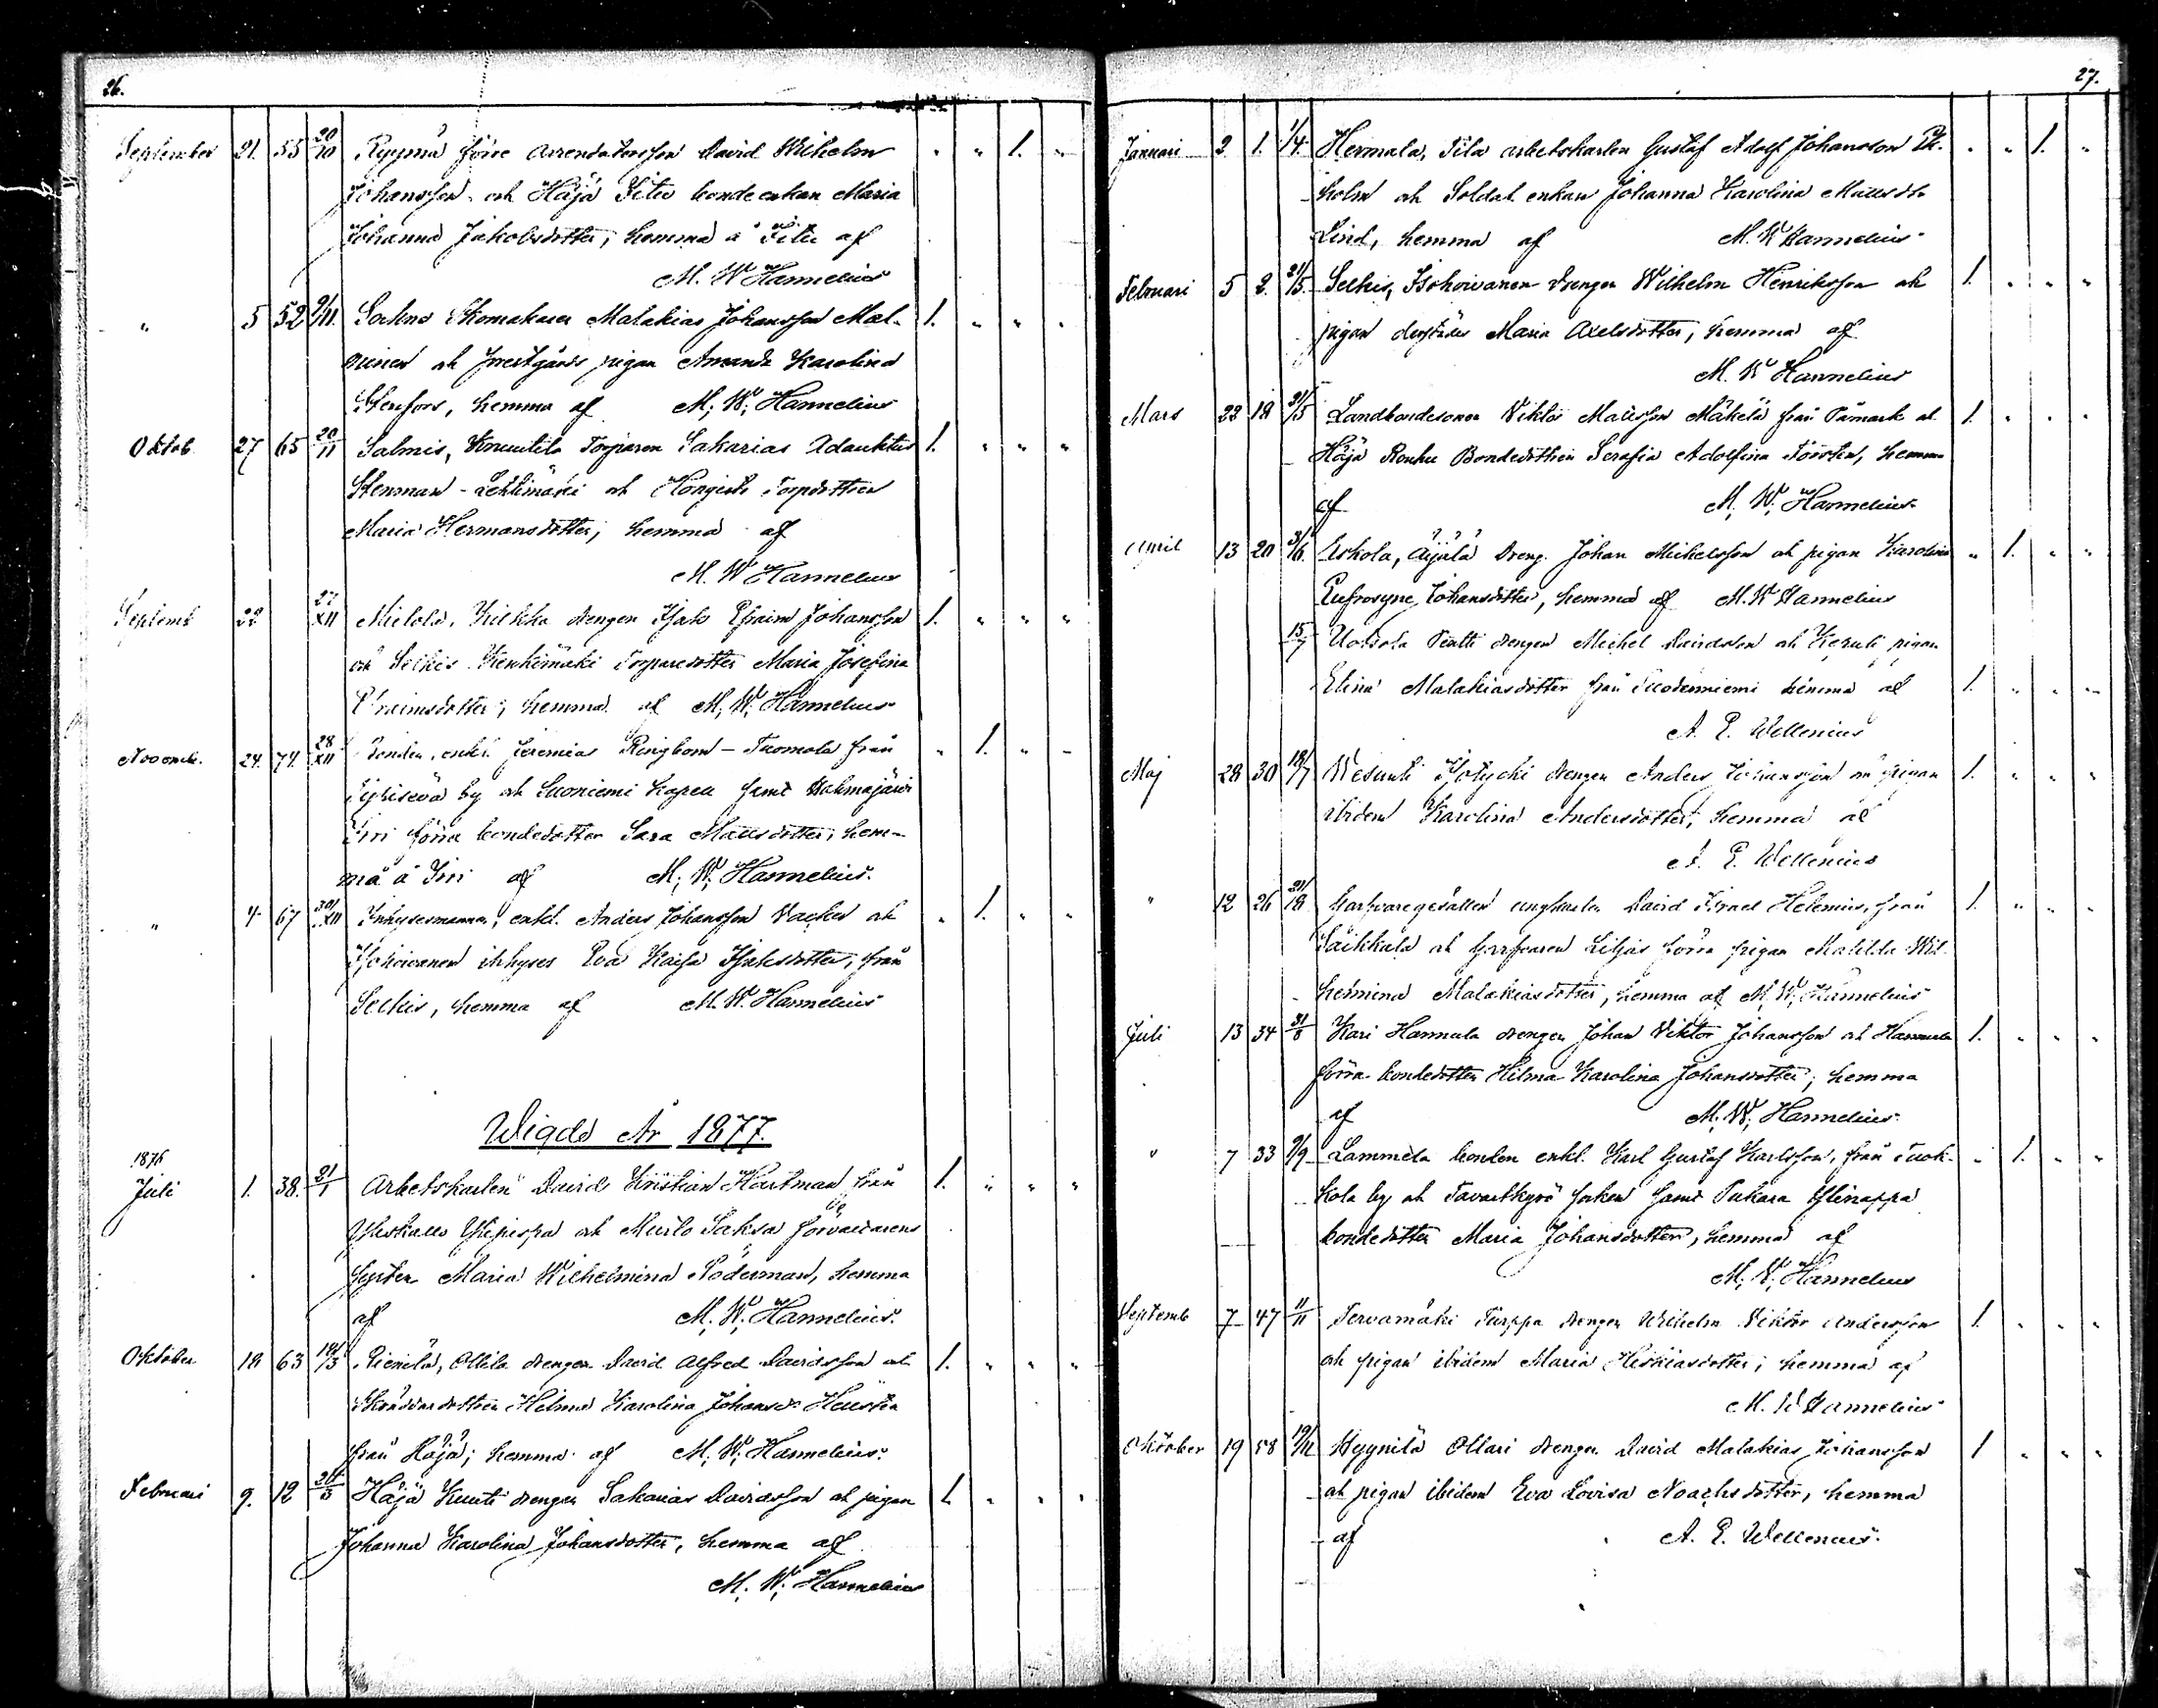 26.
September 21. 55 20/10 Ryymä förre arrendatorsson David Wilhelm " " 1. "
Johansson och Häjä Sito bonde enkan Maria
Johanna Jakobsdotter; hemma å Sito af
M. W. Hannelius
" 5 52 9/11. Skomakaren Malakias Johansson Mal- 1. " " "
ninen och prestgårds pigan Amanda Karolina
Stenfors, hemma af M. W. Hannelius
Oktob. 27 65 20/11 Salmis, Knuutila Torparen Sakarias Adauktus 1. " " "
Stenman - Lehtimäki och Hongisto Torpdottren
Maria Hermansdotter; hemma af
M. W. Hannelius
Septemb 22 27/XII drengen Isak Efraim Johansson 1. " " "
och Selkis Kenkimäki Torparedotter Maria Josefina
Efraimsdotter; hemma af M. W. Hannelius
Novemb. 24. 74. 28/XII enkl. Jeremias Ringbom - Tuomola från " 1. " "
by och Suoniemi Kapell samt
förra bondedotter Sara Mattsdotter; hem-
ma å af M. W. Hannelius.
" 4. 67 30/XII Inhysesmannen, enkl. Anders Johansson och " 1. " "
Isohoivanen inhyses Eva Kaisa Isaksdotter, från
Selkis, hemma af M. W. Hannelius
Wigde År 1877.
1876
Juli 1. 38. 21/1 Arbetskarlen David Kristian Hartman från 1. " " "
och förvaltarens
syster Maria Wilhelmina Söderman, hemma
af M. W. Hannelius.
Oktober 18 63 18/3 Ollila drengen David Alfred Davidsson och 1. " " "
Skräddardottren Helma Karolina Johansd.
från Häjä; hemma af M. W. Hannelius.
Februari 9. 12 Häjä Kuuti drengen Sakarias Davidsson och pigan 1. " " "
Johanna Karolina Johansdotter, hemma af
M. W. Hannelius
27.
Januari 2 1. 1/4 Hermala, Tila arbetskarlen Gustaf Adolf Johansson Ek- " " 1. "
holm och Soldat enkan Johanna Karolina Mattsdr
Lind, hemma af M. W. Hannelius
Februari 5 2. 21/5. Selkis, Isohoivanen drengen Wilhelm Henriksson och 1. " " "
pigan Maria Axelsdotter, hemma af
M. W. Hannelius
Mars 22 18 21/5 Landbondesonen Viktor Mattsson Mäkelä från Påmark och 1. " " "
Häjä Rouhu Bondedottren Serafia Adolfina hemma
af M. W. Hannelius.
April 13 20 3/6. Eskola, Äijälä Dreng. Johan Mickelsson och pigan Karolina " 1. " "
Eufrosyne Johansdotter, hemma af M. W. Hannelius
15/7 Uotsola Pentti drengen Michel Davidsson och pigan
Elina Malakiasdotter från hemma af 1. " " "
A. E. Wellenius
Maj 28 30 18/7 Wesunti drengen Anders Johansson och pigan 1. " " "
ibidem Karolina Andersdotter; hemma af
A. E. Wellenius
" 12 26 21/8 Garfvaregesällen David Israel Helenius, från 1. " " "
och Garfvaren Liljas förra pigan Matilda Wil-
helmina Malakiasdotter, hemma af M. W. Hannelius
Juli 13 34 31/8 Kari Hannula drengen Johan Viktor Johansson och Hannula 1. " " "
förra bondedotter Hilma Karolina Johansdotter; hemma
af M. W. Hannelius.
" 7 33 9/9 Lammela bonden enkl. Karl Gustaf Karlsson, från Tuok- " 1. " "
kola by och Tavastkyrö socken samt Pukara
bondedotter Maria Johansdotter, hemma af
M. W. Hannelius
Septemb 7 47 11/11 Tervamäki Turppa drengen Wilhelm Viktor Andersson 1. " " "
och pigan ibidem Maria Hiskiasdotter; hemma af
M. W. Hannelius
Oktober 19 58 19/12 Hyynilä Ollari drengen David Malakias Johansson 1 " " "
och pigan ibidem Eva Lovisa Noachsdotter, hemma
af A. E. Wellenius.